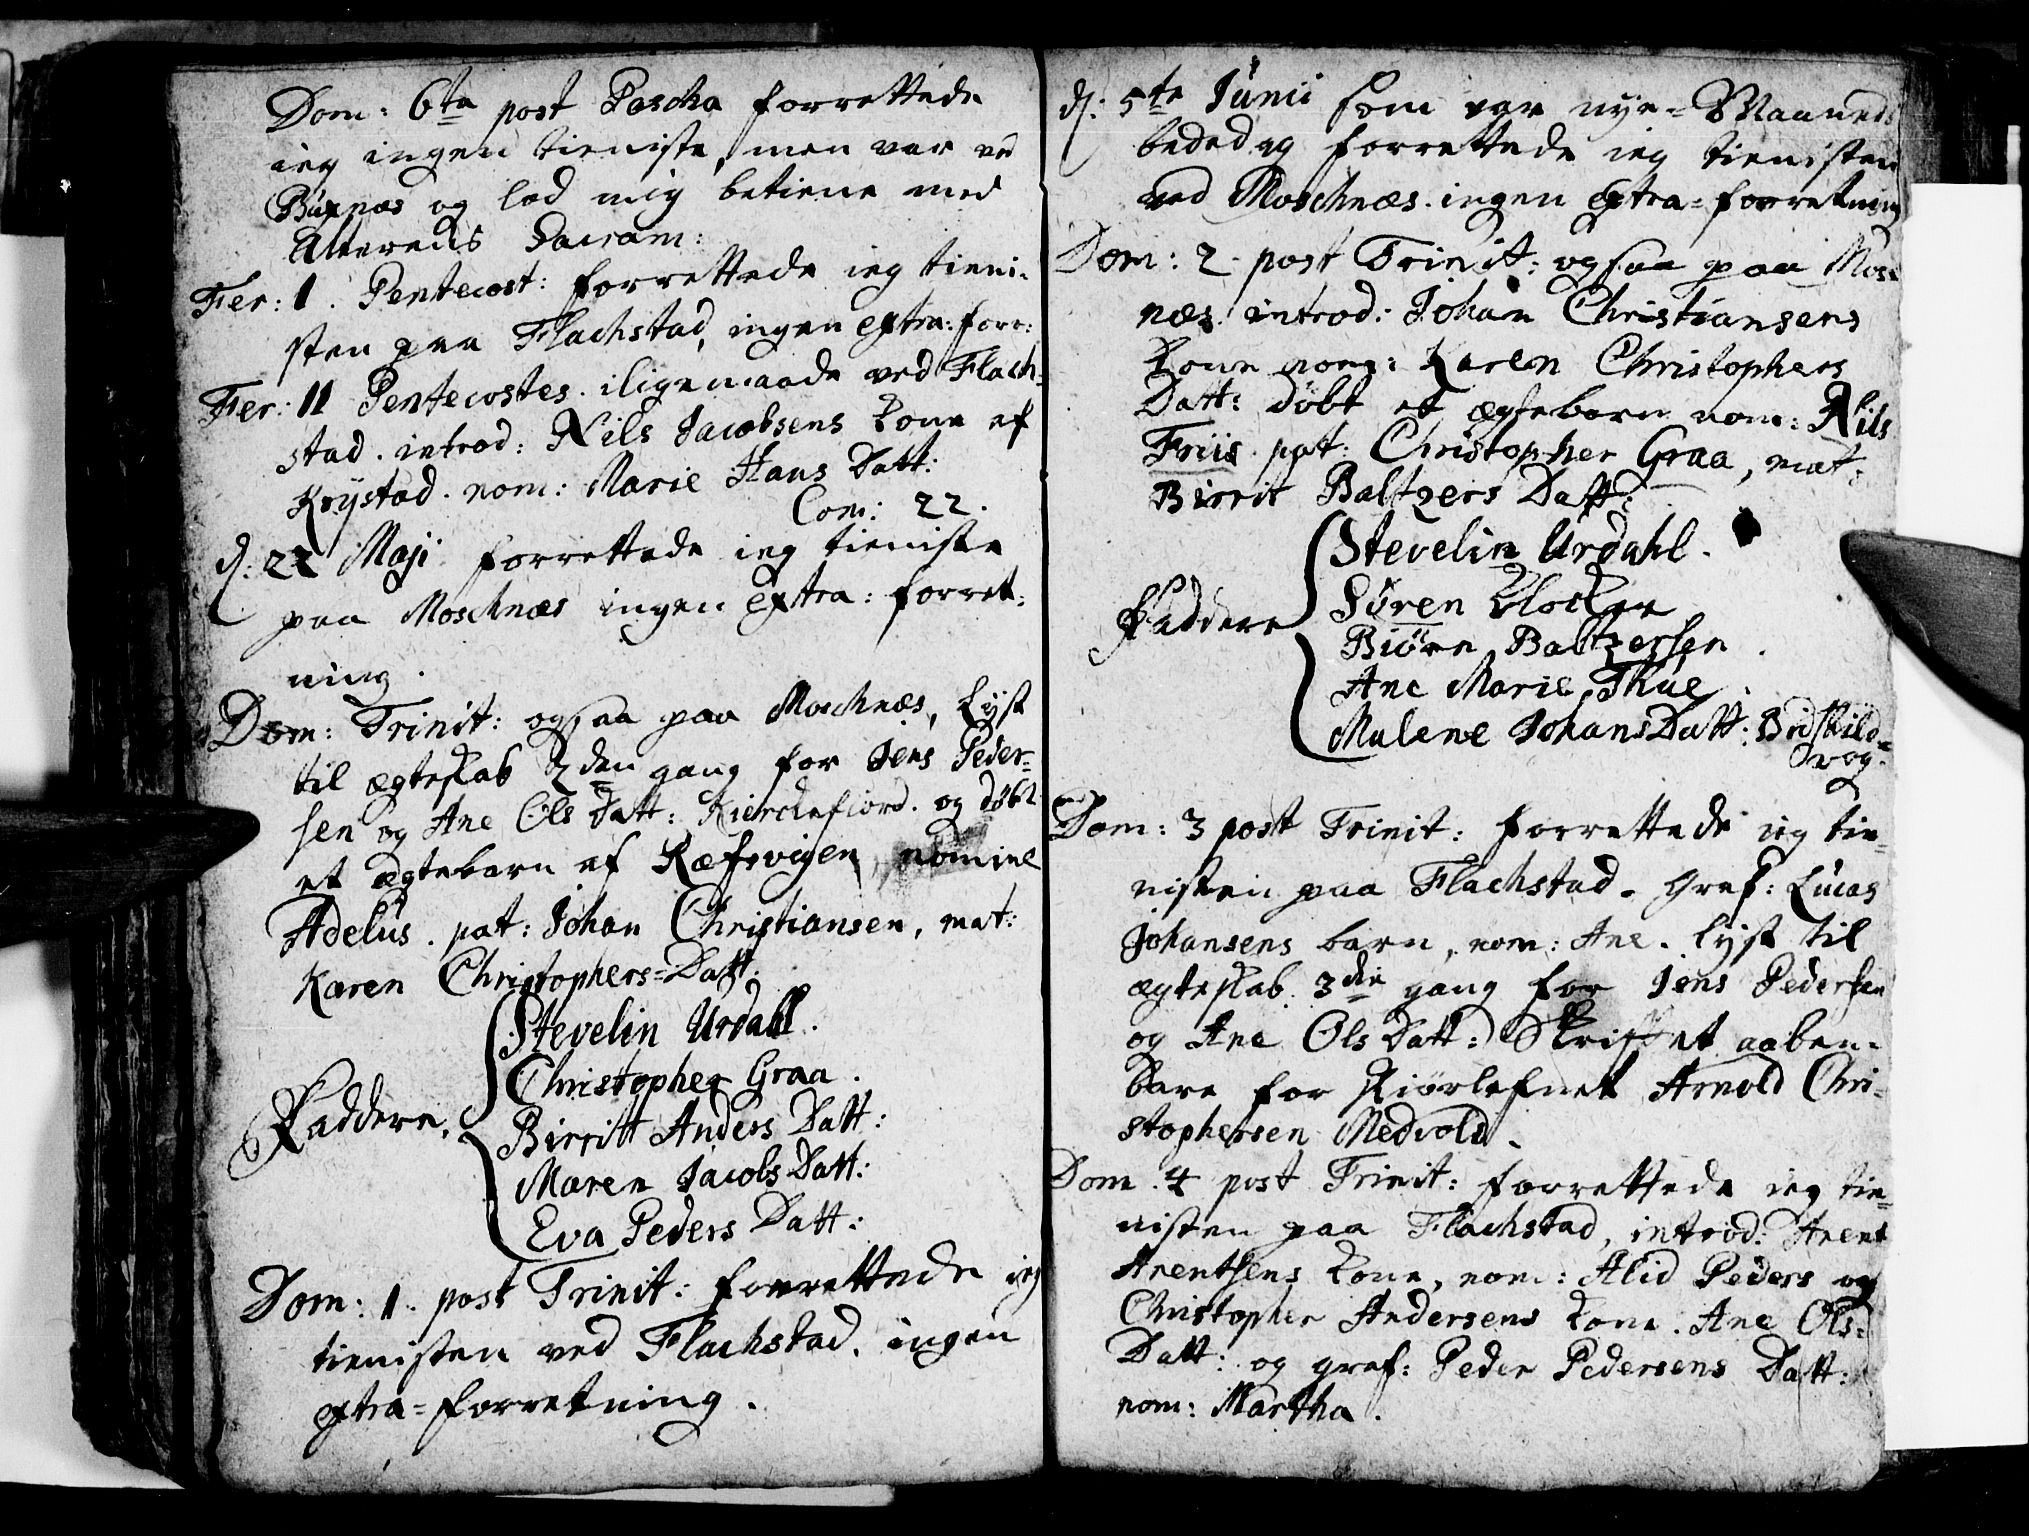 Dom: 6ta post Pascha forrettede
ieg ingen tieniste, men var ved
Buxnæs og lod mig betiene med
Alterets Sacram:
Fer: 1. Pentecost: forrettede ieg tieni-
sten paa Flachstad, ingen extra-forr:
Fer: 11 Pentecostes. iligemaade ved Flach-
stad. introd: Nils Jacobsens Kone af
Krystad. nom: Marie Hans Datt:
Com: 22.
d: 22 Maji forrettede ieg tieniste
paa Moschnæs ingen extra: forret-
ning.
Dom: Trinit: ogsaa paa Moschnæs, Lyst
til ægteskab 2den gang for Jens Peder-
sen og Ane Ols Datt: Kierckefiord. og døbt
et ægtebarn af Ræfsvigen nomine
Adelus. pat: Johan Christiansen, mat:
Karen Christophers-Datt:
Faddere,
Stevelin Urdahl.
Christopher Graa.
Birritt Anders Datt:
Maren Jacobs Datt:
Eva Peders Datt:
Dom: 1. post Trinit: forrettede ieg
tienisten ved Flachstad. ingen
extra-forretning.
d: 5te Junii som var nye-Maaneds
bededag forrettede ieg tienisten
ved Moschnæs. ingen extra-forretning
Dom: 2. post Trinit: ogsaa paa Mos-
næs. introd: Johan Christiansens
Kone nom: Karen Christophers
Datt: døbt et ægtebarn nom: Nils
Friis. pat: Christopher Graa, mat:
Birrit Baltzers Datt:
Faddere
Stevelin Urdahl.
Søren Klocker
Biørn Baltzersen.
Ane Marie Thue.
Malene Johans Datt: Bridskild-
vog.
Dom: 3 post Trinit: forrettede ieg tie-
nisten paa Flachstad. Græf: Lucas
Johansens barn, nom: Ane. lyst til
ægteskab 3die gang for Jens Pedersen
og Ane Ols Datt: Skriftet aaben-
bare for Kiørlefnet Arnold Chri-
stophersen Medvold.
Dom. 4 post Trinit: forrettede ieg tie-
nisten paa Flachstad, introd: Arent
Arentsens Kone, nom: Alid Peders og
Christopher Andersens Kone. Ane Ols-
Datt: og græf: Peder Pedersens Datt:
nom: Martha.